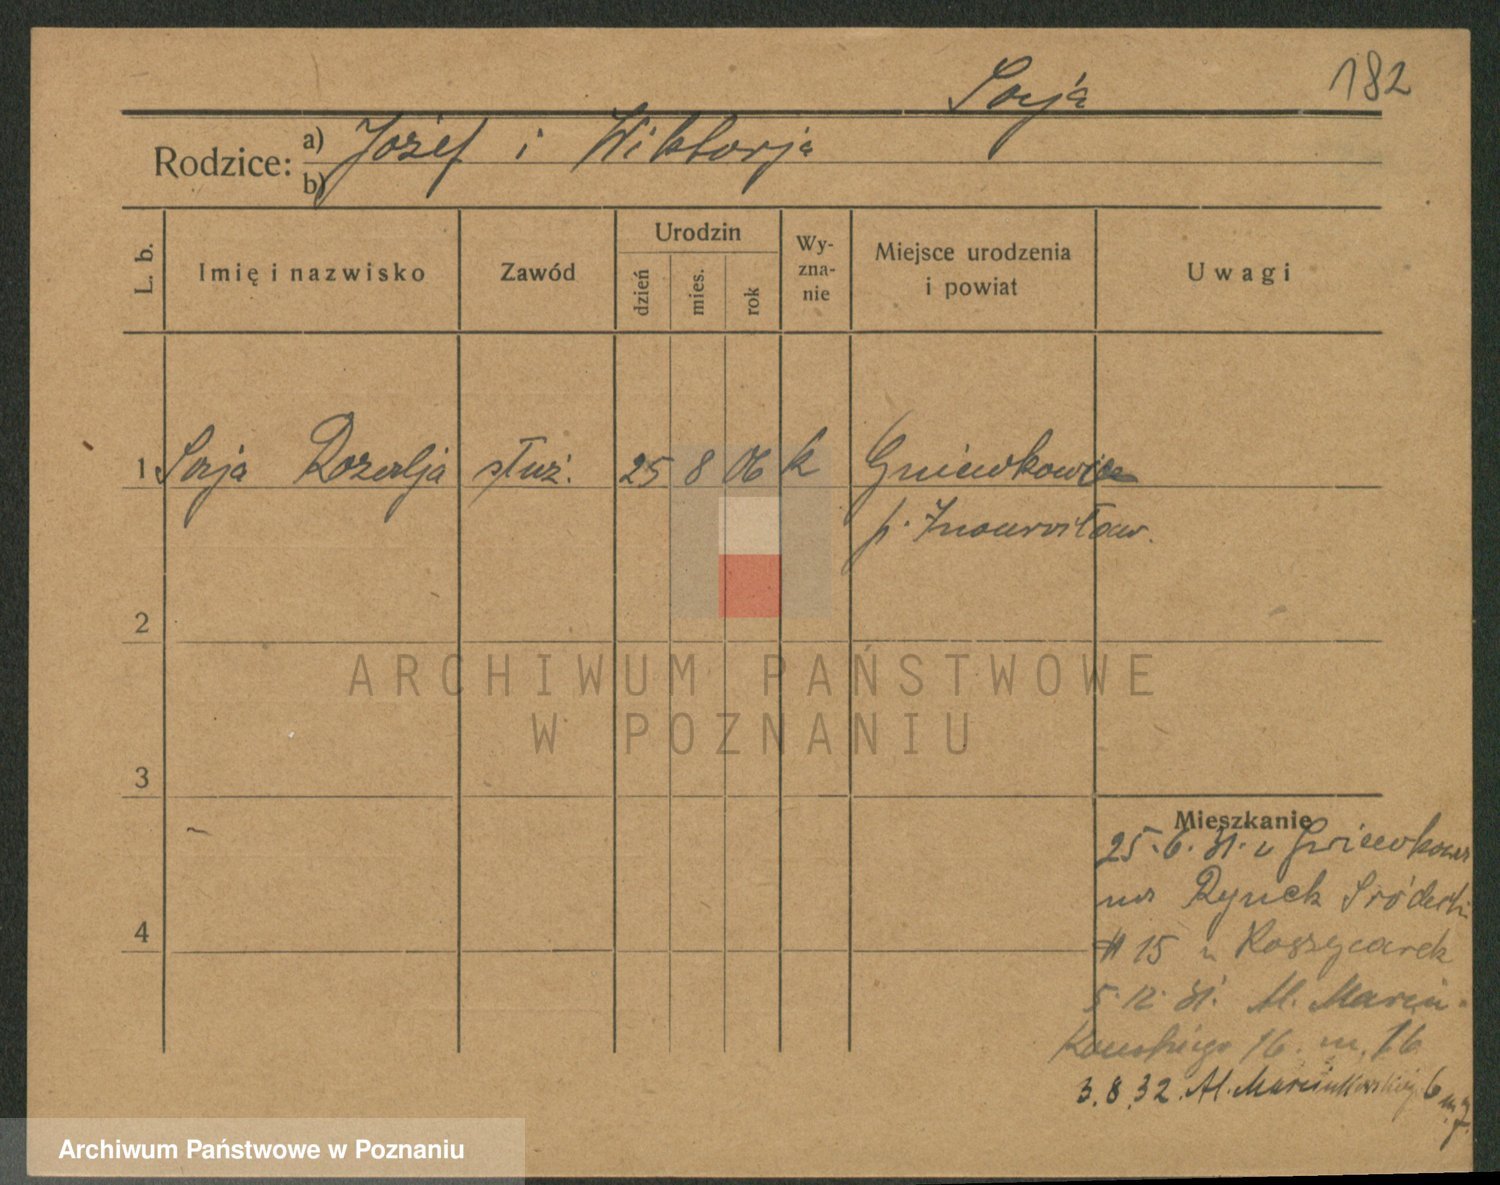 182
Soyja
Rodzice: a) Józef i Wiktorja
b)
L. b.
Imię i nazwisko
Zawód
Urodzin
dzień
mies.
rok
Wy-
zna-
nie
Miejsce urodzenia
i powiat
Uwagi
1 Rozalja służ. 25 8 06 k Gniewkowice
p. Inowrocław.
2
3
4
Mieszkanie
25.6.31. z Gniewkowa
na Rynek Śródecki
15 u
5.12.31. Al. Marcin-
kowskiego 16. m. 16
3.8.32. Al. Marcinkowskiego 6 m. 7.
ARCHIWUM PAŃSTWOWE
W POZNANIU
Archiwum Państwowe w Poznaniu